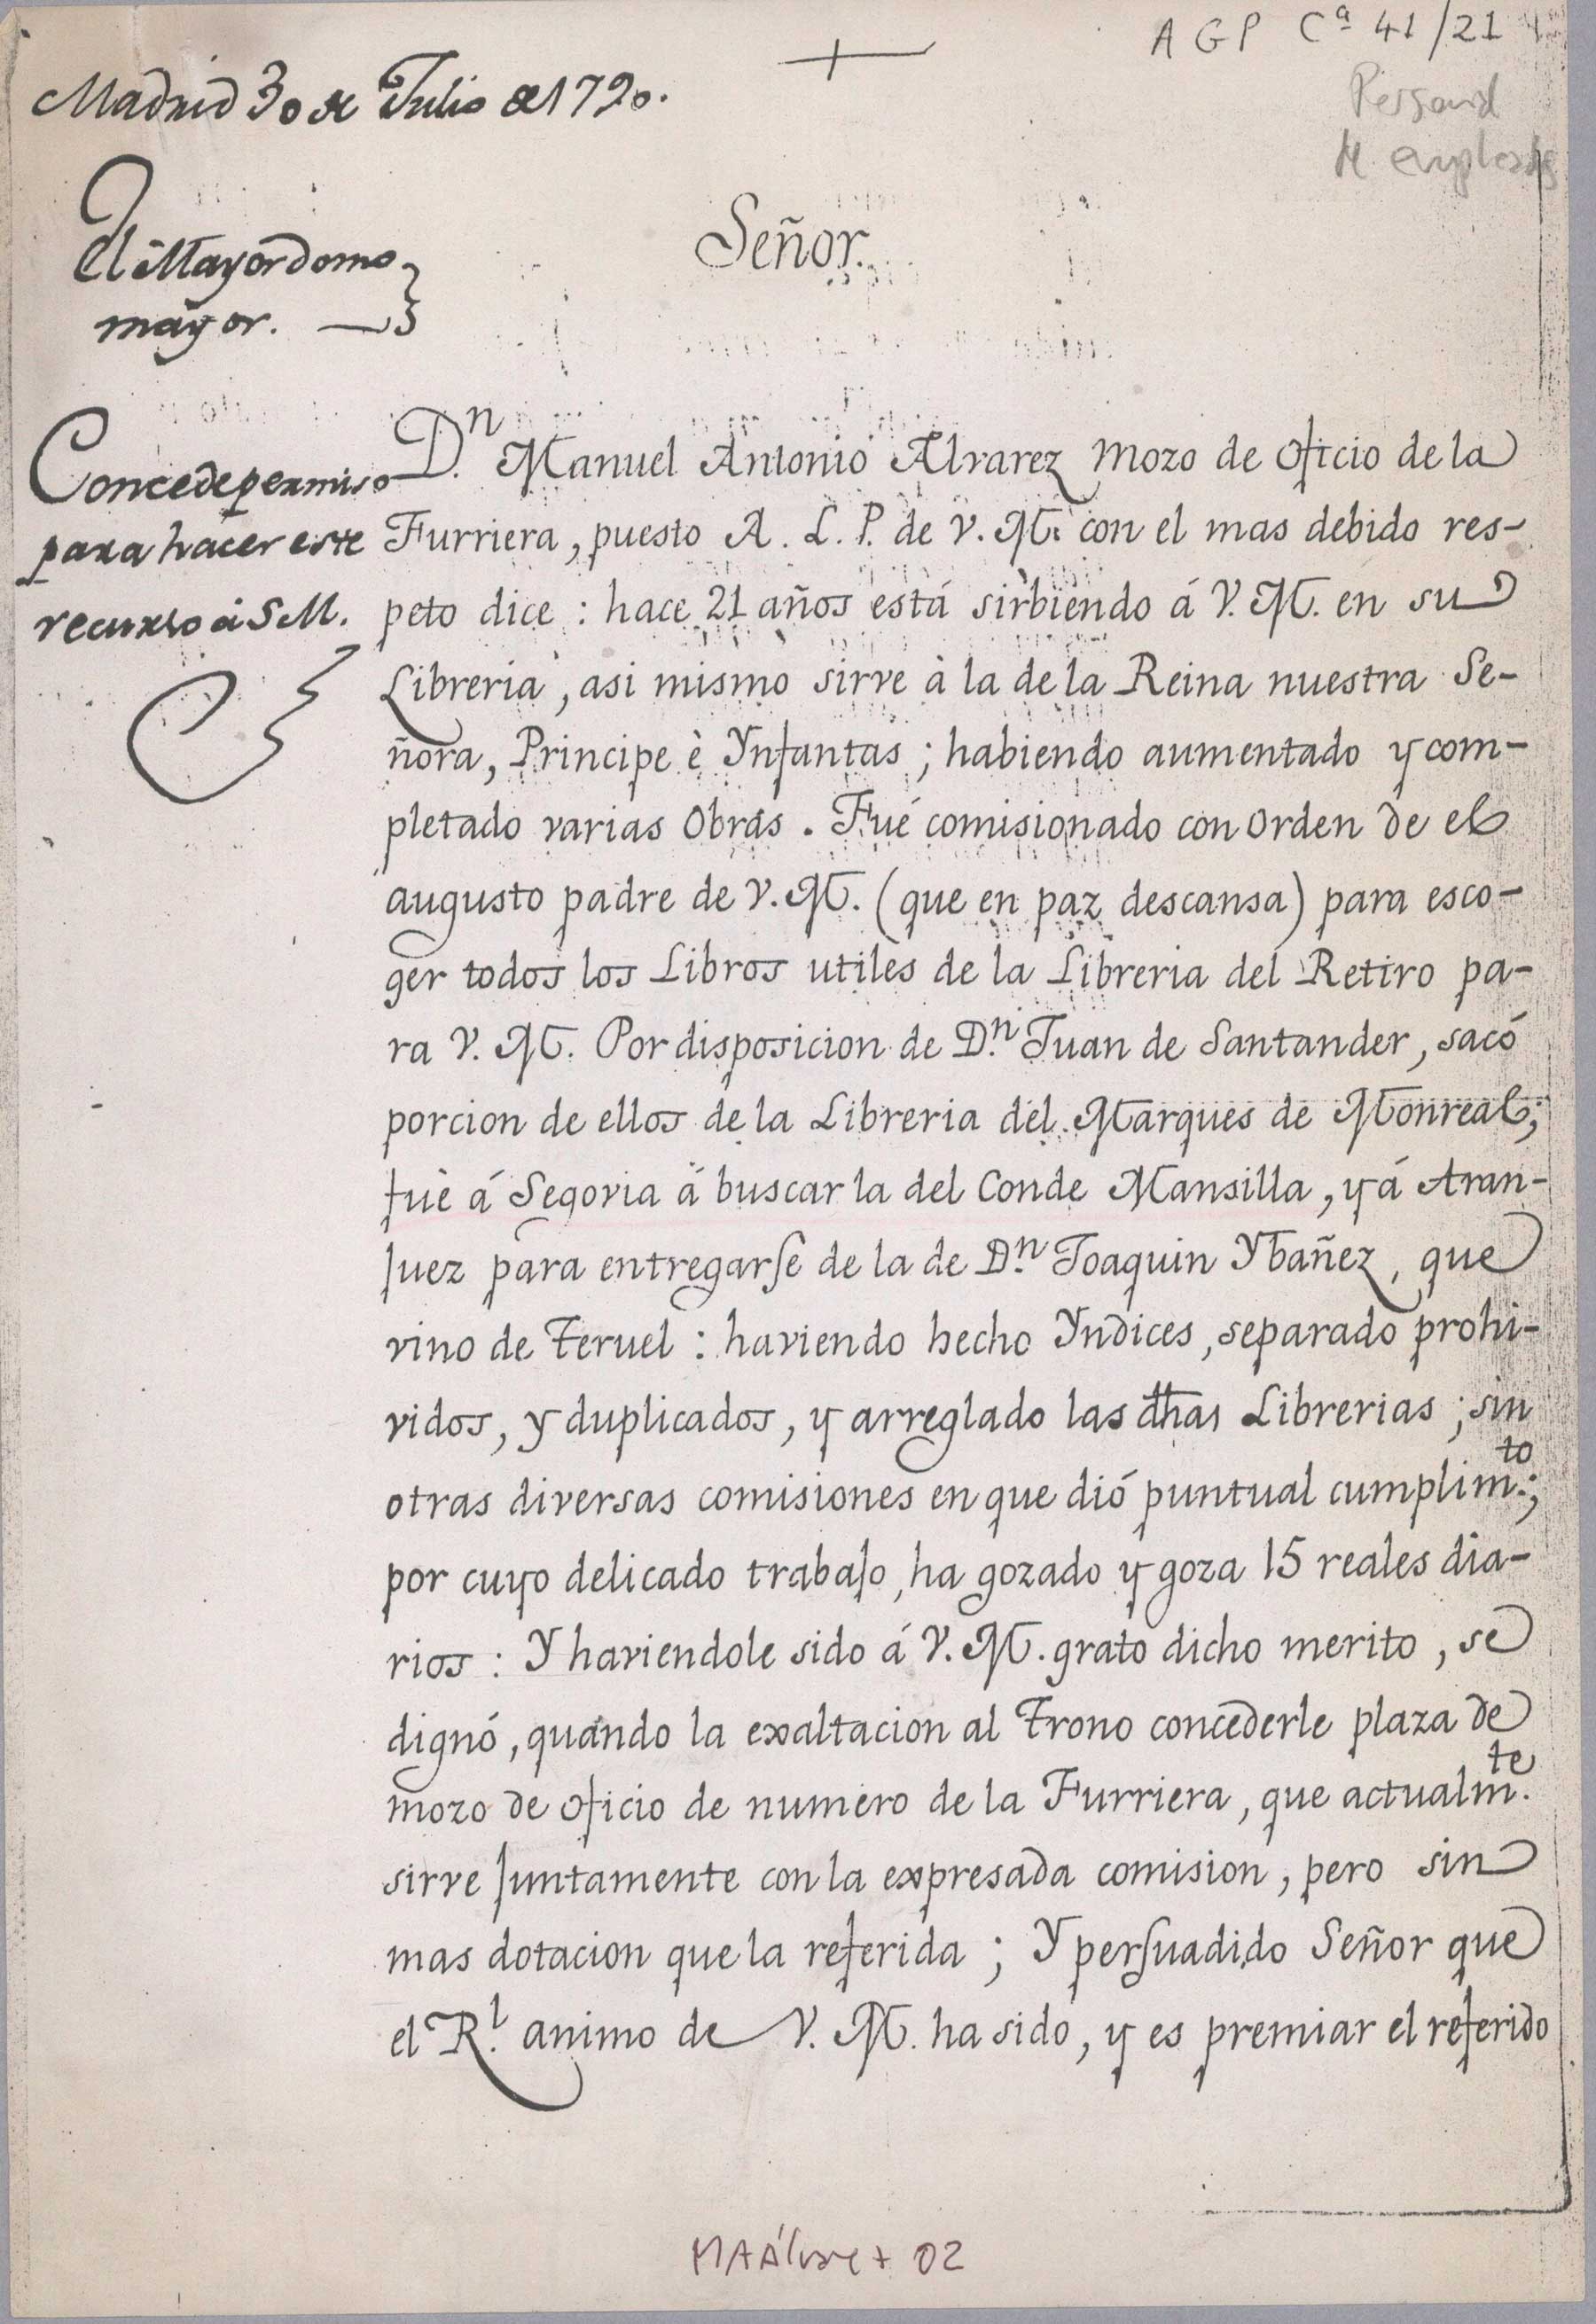 AGP Cª 41/21
Personal
de empleados
Madrid 30 de Julio de 1790.
El Mayordomo
mayor.
Señor.
Concede permiso
para hacer este
recurso á S M.
D.n Manuel Antonio Alvarez Mozo de Oficio de la
Furriera, puesto A. L. P. de V. M. con el mas debido res-
peto dice : hace 21 años está sirbiendo á V. M. en su
Libreria, asi mismo sirve à la de la Reina nuestra Se-
ñora, Principe è Ynfantas ; habiendo aumentado y com-
pletado varias Obras . Fué comisionado con Orden de el
augusto padre de V. M. (que en paz descansa) para esco-
ger todos los Libros utiles de la Libreria del Retiro pa-
ra V. M. Por disposicion de D.n Juan de Santander, sacó
porcion de ellos de la Libreria del Marques de Monreal;
fuè á Segovia á buscar la del Conde Mansilla, y á Aran-
juez para entregarse de la de D.n Joaquin Ybañez, que
vino de Teruel : haviendo hecho Yndices, separado prohi-
vidos, y duplicados, y arreglado las dhas Librerias ; sin
otras diversas comisiones en que dió puntual cumplim.to;
por cuyo delicado trabajo, ha gozado y goza 15 reales dia-
rios : Y haviendole sido á V. M. grato dicho merito, se
dignó, quando la exaltacion al Trono concederle plaza de
mozo de oficio de numero de la Furriera, que actualm.te
sirve juntamente con la expresada comision, pero sin
mas dotacion que la referida ; Y persuadido Señor que
el R.l animo de V. M. ha sido, y es premiar el referido
MAÁlvare+ 02